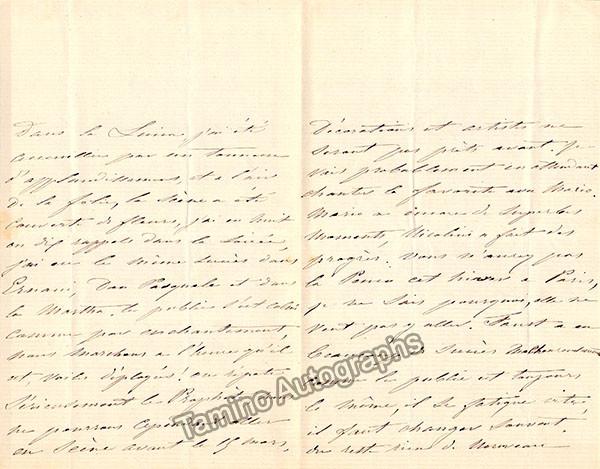 Dans la Lucia j'ai été
accueillie par un tonnerre
d'applaudissements, et a l'air
de la folie, la scène a été
couverte de fleurs, j'ai eu huit
ou dix rappels dans la Soirée,
j'ai eu le même succès dans
Ernani, Don Pasquale et dans
la Martha. le public s'est calmé
comme par enchantement,
nous marchons a l'heure qu'il
est, voiles déployés! on répète
Sérieusement le Prophète, nous
ne pourrons cependant aller
en Scène avant le 15 mars,
Décorations et artistes ne
seront pas prêts avant. Je
vais probablement en attendant
chanter la favorite avec Mario.
Mario a encore de Superbes
moments, Nicolini a fait des
progrès. Vous n'aurez pas
la Penco cet hiver a Paris,
je ne Sais pourquoi, elle ne
veut pas y aller. Faust a eu
beaucoup de Succès malheureusement
le public est toujours
le même, il se fatigue vite,
il faut changer Souvent.
du reste rien de Nouveau
Tamino Autographs